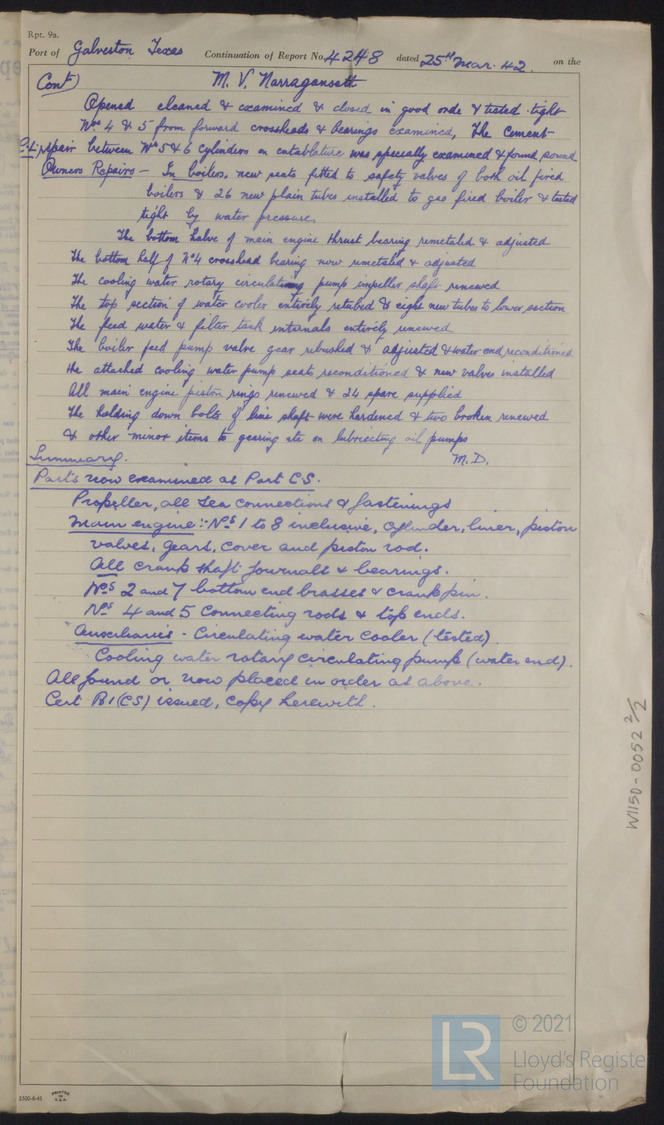 Rpt. 9a.
Port of Galveston Texas Continuation of Report No. 4248 dated 25th Mar. 42. on the
(Cont) M. V. Narragansett
Opened cleaned & examined & closed in good orde & tested tight
Nos 4 & 5 from forward crossheads & bearings examined, The cement
repair between Nos 5 & 6 cylinders on entablature was specially examined & found sound
Owners Repairs - In boilers, new seats fitted to safety valves of both oil fired
boilers & 26 new plain tubes installed to gas fired boiler & tested
tight by water pressure.
The bottom halve of main engine thrust bearing remetaled & adjusted
The bottom half of No 4 crosshead bearing now remetaled & adjusted
The cooling water rotary circulating pump impeller shaft renewed
The top section of water cooler entirely retubed & eight new tubes to lower section
The feed water & filter tank internals entirely renewed
The boiler feed pump valve gear rebushed & adjusted & water end reconditioned
The attached cooling water pump seats reconditioned & new valves installed
All main engine piston rings renewed & 24 spare supplied
The holding down bolts of line shaft were hardened & two broken renewed
& other minor items to gearing etc on lubricating oil pumps
M.D.
Summary.
Parts now examined as Part CS.
Propeller, all sea connections & fastenings
Main engine:- Nos 1 to 8 inclusive, cylinder, liner, piston
valves, gears, cover and piston rod.
All crank shaft journals & bearings.
Nos 2 and 7 bottom end brasses & crankpin.
Nos 4 and 5 connecting rods & top ends.
Auxiliaries - Circulating water cooler (tested)
Cooling water rotary circulating pump (water end).
All found or now placed in order as above.
Cert B1 (CS) issued, copy herewith.
W1150-0052 2/2
© 2021
Lloyd's Register
Foundation
LR
PRINTED
IN
U.S.A.